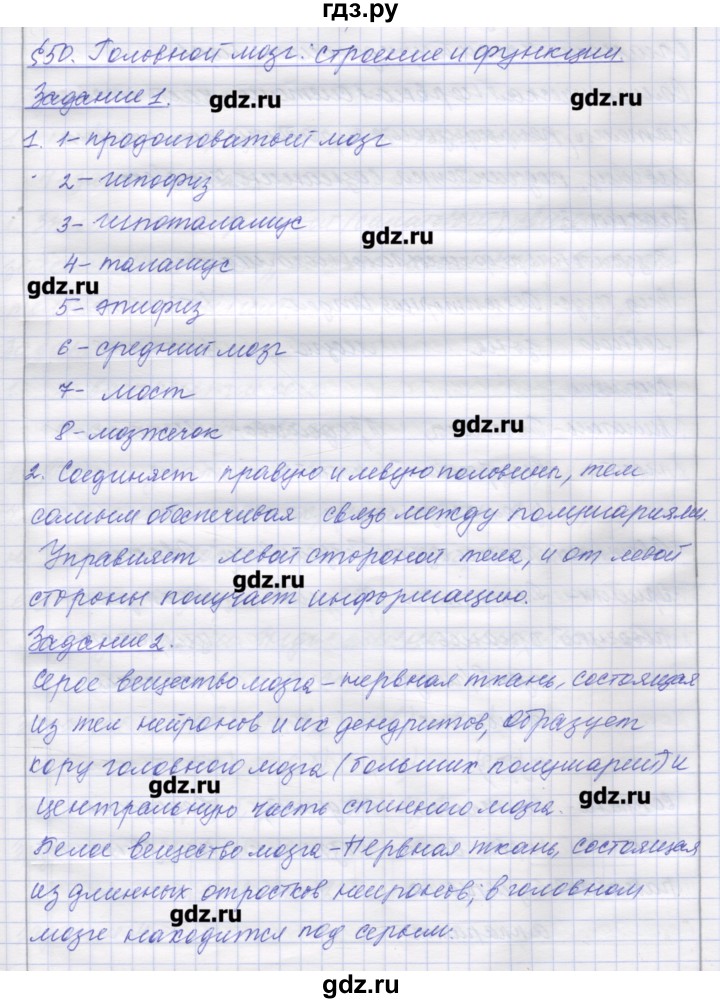 гдз.ру
§50. Головной мозг: строение и функции.
Задание 1.
gdz.ru gdz.ru
1. 1- продолговатый мозг
2- гипофиз
3- гипоталамус
gdz.ru
4- таламус
gdz.ru
5- эпифиз
6- средний мозг
7- мост
8- мозжечок
gdz.ru
2. Соединяет правую и левую половины, тем
самым обеспечивая связь между полушариями.
Управляет левой стороной тела, и от левой
gdz.ru
стороны получает информацию.
Задание 2.
Серое вещество мозга - нервная ткань, состоящая
из тел нейронов и их дендритов, образует
кору головного мозга (больших полушарий) и
gdz.ru gdz.ru
центральную часть спинного мозга.
Белое вещество мозга - Нервная ткань, состоящая
из длинных отростков нейронов; в головном
gdz.ru
мозге находится под серым.
gdz.ru